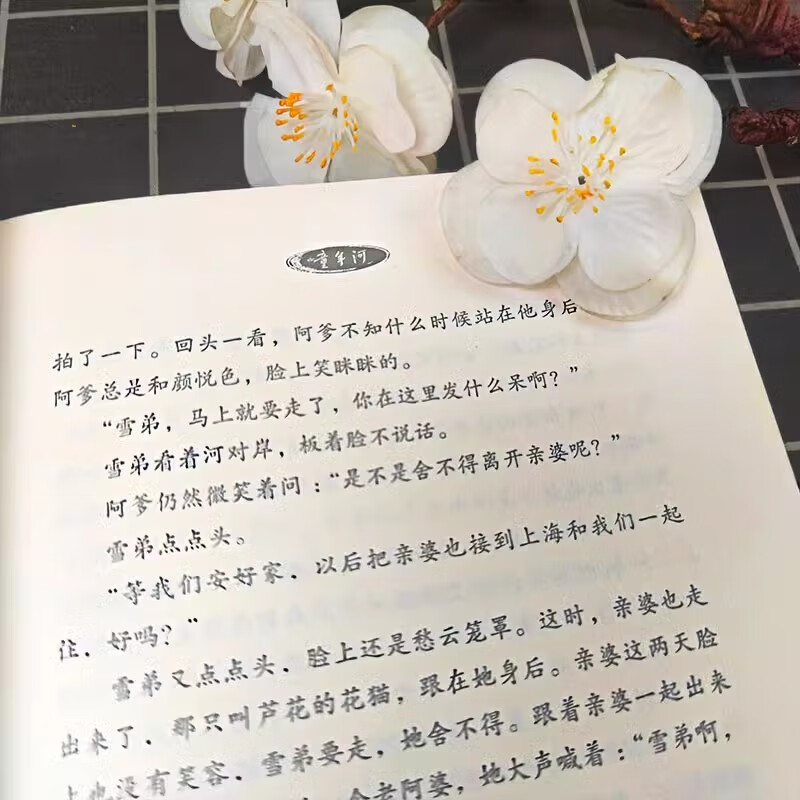 童年河
拍了一下。回头一看，阿爹不知什么时候站在他身后
阿爹总是和颜悦色，脸上笑眯眯的。
“雪弟，马上就要走了，你在这里发什么呆啊？”
雪弟看着河对岸，板着脸不说话。
阿爹仍然微笑着问：“是不是舍不得离开亲婆呢？”
雪弟点点头。
“等我们安好家，以后把亲婆也接到上海和我们一起
住，好吗？”
雪弟又点点头，脸上还是愁云笼罩。这时，亲婆也走
出来了，那只叫芦花的花猫，跟在她身后。亲婆这两天脸
上也没有笑容，雪弟要走，她舍不得。跟着亲婆一起出来
个老阿婆，她大声喊着：“雪弟啊，